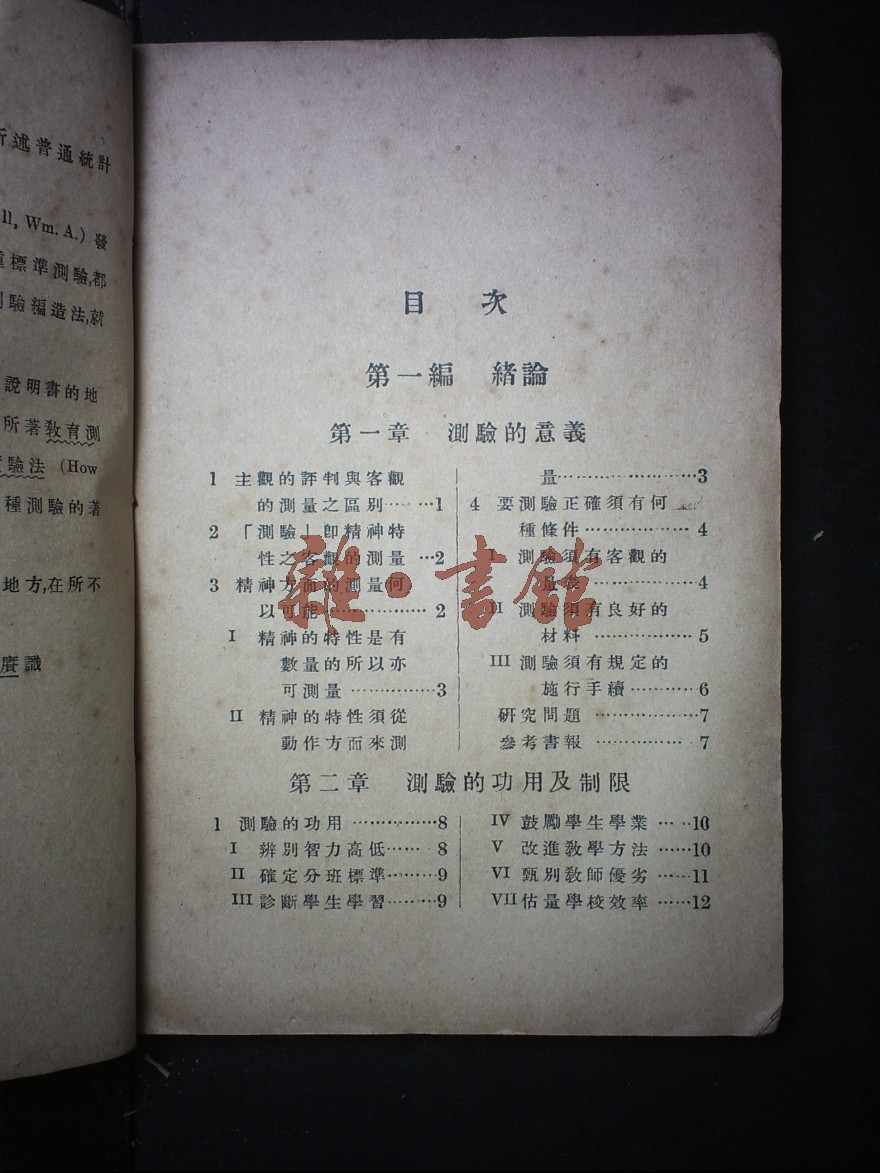 所述普通統計
ll, Wm. A.) 發
標準測驗,都
驗編造法,就
說明書的地
所著教育測
驗法 (How
種測驗的著
地方,在所不
廣識
目次
第一編 緒論
第一章 測驗的意義
1 主觀的評判與客觀
的測量之區別……1
2 「測驗」卽精神特
性之客觀的測量…2
3 精神方面的測量何
以可能………………2
I 精神的特性是有
數量的所以亦
可測量……………3
II 精神的特性須從
動作方面來測
量…………………3
4 要測驗正確須有何
種條件………………4
I 測驗須有客觀的
量表………………4
II 測驗須有良好的
材料………………5
III 測驗須有規定的
施行手續…………6
研究問題……………7
參考書報……………7
第二章 測驗的功用及制限
1 測驗的功用……………8
I 辨別智力高低……8
II 確定分班標準………9
III 診斷學生學習………9
IV 鼓勵學生學業……10
V 改進教學方法……10
VI 甄別教師優劣……11
VII 估量學校效率……12
雜·書館